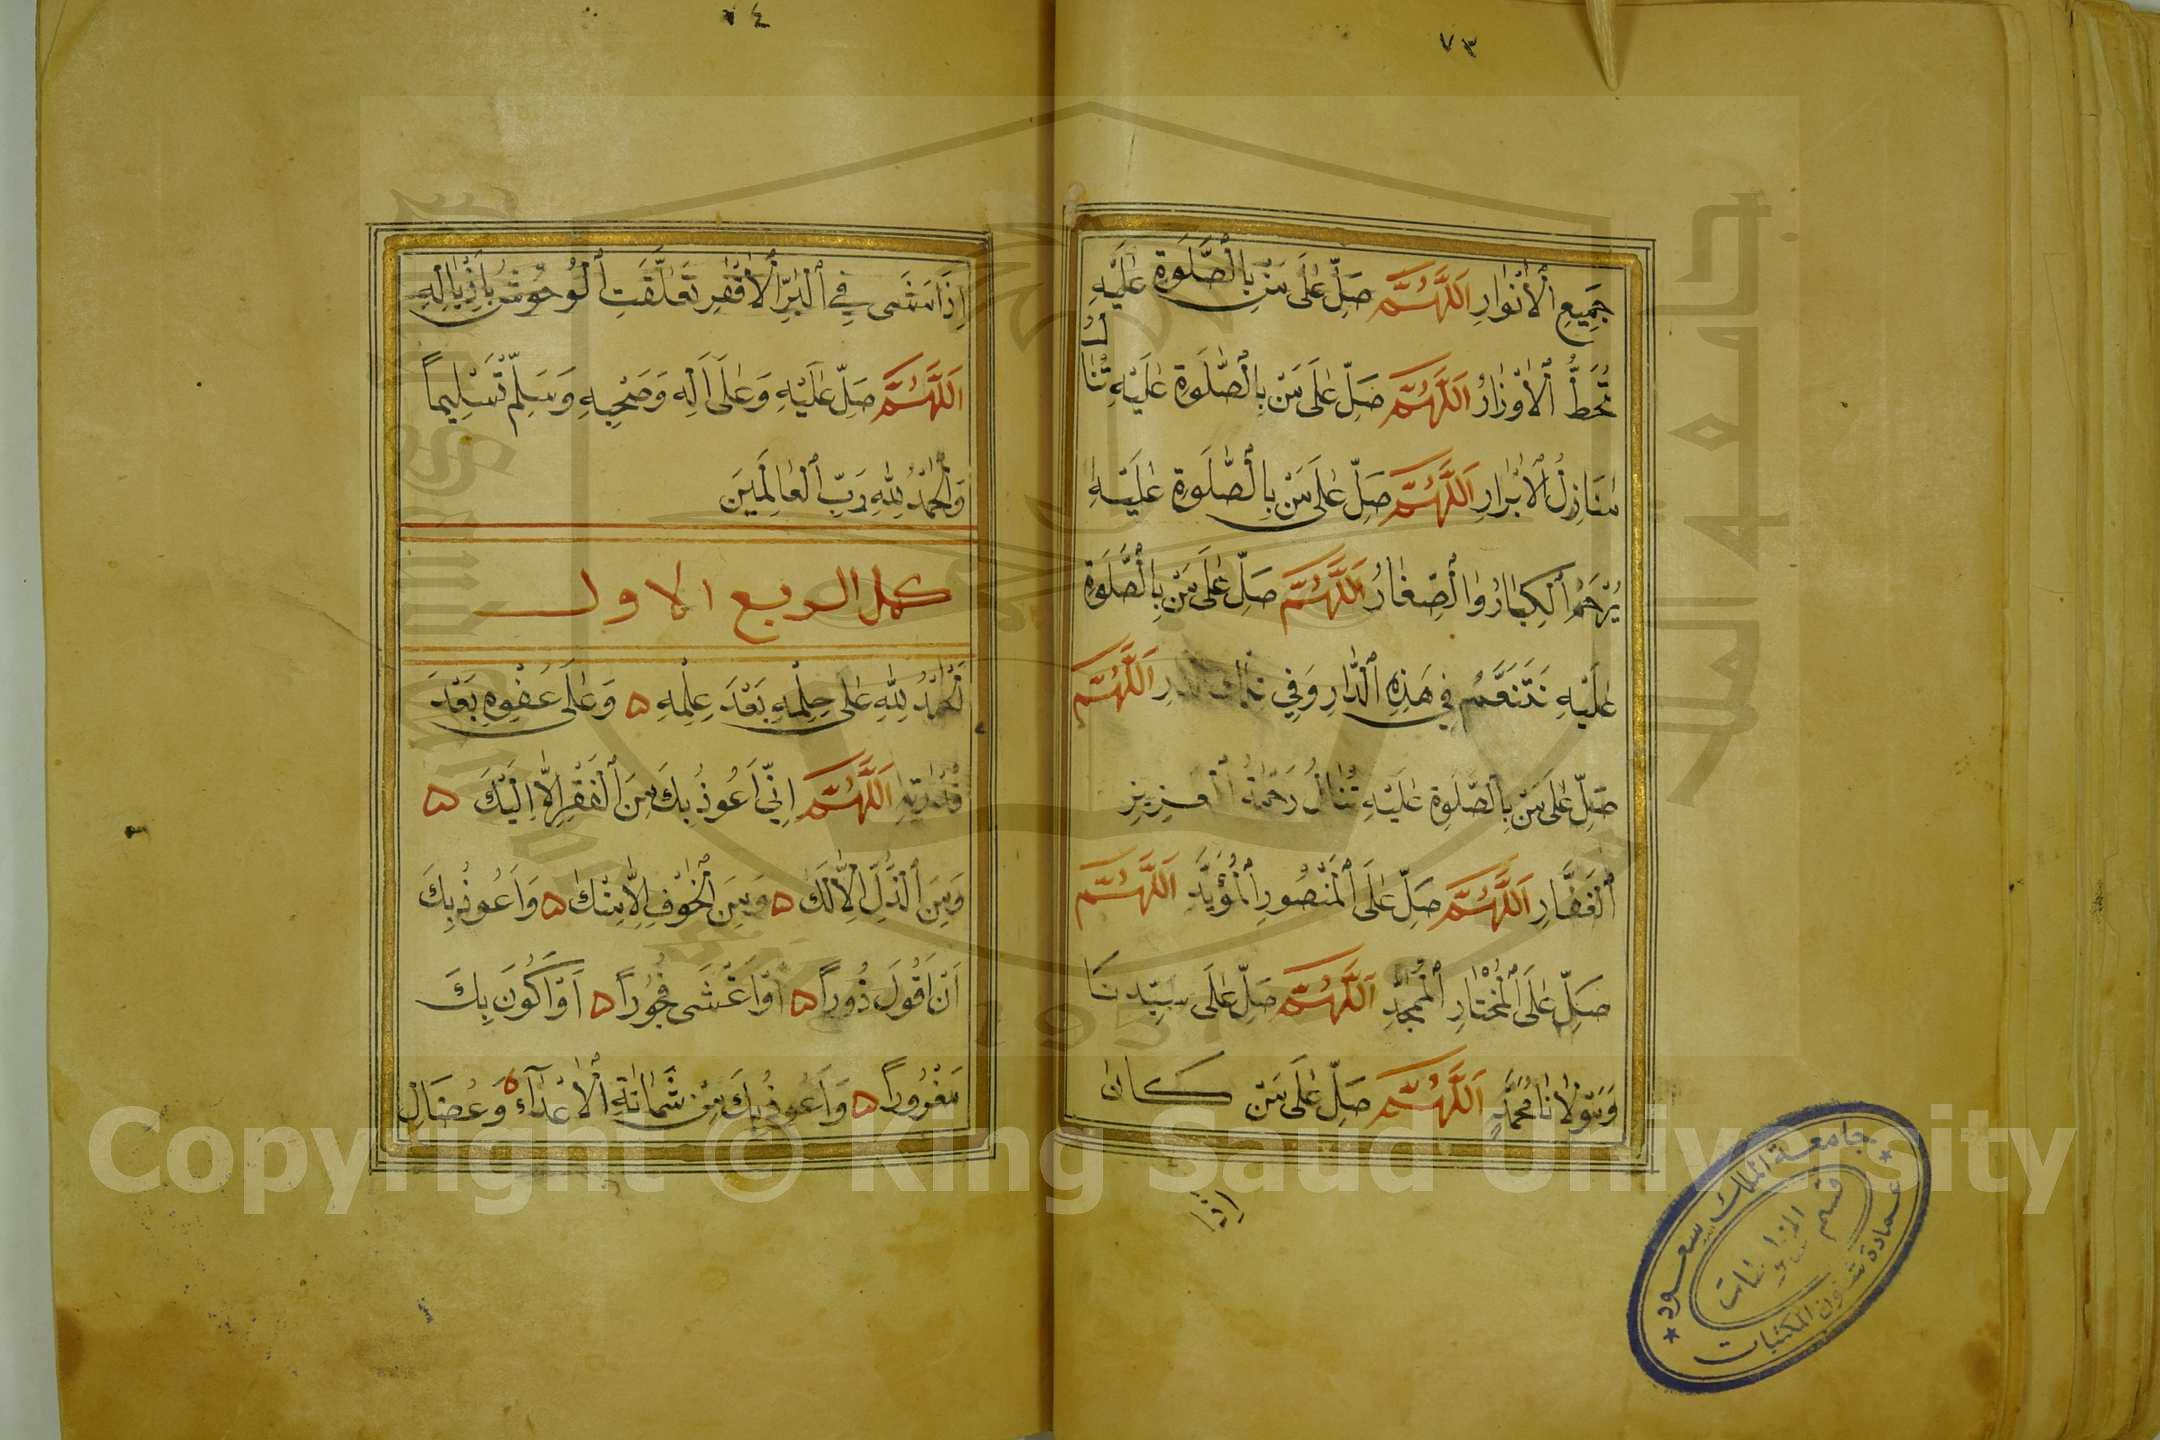 ٧٣
جَمِيعِ ٱلْأَنْوَارِ اَللّٰهُمَّ صَلِّ عَلَى مَنْ بِالصَّلٰوةِ عَلَيْهِ
تُحَطُّ ٱلْأَوْزَارُ اَللّٰهُمَّ صَلِّ عَلَى مَنْ بِالصَّلٰوةِ عَلَيْهِ تُنَالُ
مَنَازِلُ ٱلْأَبْرَارِ اَللّٰهُمَّ صَلِّ عَلَى مَنْ بِالصَّلٰوةِ عَلَيْهِ
يُرْحَمُ ٱلْكِبَارُ وَالصِّغَارُ اَللّٰهُمَّ صَلِّ عَلَى مَنْ بِالصَّلٰوةِ
عَلَيْهِ نَتَنَعَّمُ فِي هَذِهِ ٱلدَّارِ وَفِي تِلْكَ ٱلدَّارِ اَللّٰهُمَّ
صَلِّ عَلَى مَنْ بِالصَّلٰوةِ عَلَيْهِ تُنَالُ رَحْمَةُ ٱلْعَزِيزِ
ٱلْغَفَّارِ اَللّٰهُمَّ صَلِّ عَلَى ٱلْمَنْصُورِ ٱلْمُؤَيَّدِ اَللّٰهُمَّ
صَلِّ عَلَى ٱلْمُخْتَارِ ٱلْمُمَجَّدِ اَللّٰهُمَّ صَلِّ عَلَى سَيِّدِنَا
وَمَوْلَانَا مُحَمَّدٍ اَللّٰهُمَّ صَلِّ عَلَى مَنْ كَانَ
إِذَا
٧٤
إِذَا مَشَى فِي ٱلْبَرِّ ٱلْأَقْفَرِ تَعَلَّقَتِ ٱلْوُحُوشُ بِأَذْيَالِهِ
اَللّٰهُمَّ صَلِّ عَلَيْهِ وَعَلَى آلِهِ وَصَحْبِهِ وَسَلِّمْ تَسْلِيماً
وَٱلْحَمْدُ لِلّٰهِ رَبِّ ٱلْعَالَمِينَ
كمل الربع الاول
اَلْحَمْدُ لِلّٰهِ عَلَى حِلْمِهِ بَعْدَ عِلْمِهِ ۵ وَعَلَى عَفْوِهِ بَعْدَ
قُدْرَتِهِ اَللّٰهُمَّ اِنِّي اَعُوذُ بِكَ مِنَ ٱلْفَقْرِ اِلَّا اِلَيْكَ ۵
وَمِنَ ٱلذُّلِّ اِلَّا لَكَ ۵ وَمِنَ ٱلْخَوْفِ اِلَّا مِنْكَ ۵ وَاَعُوذُ بِكَ
اَنْ اَقُولَ زُوراً ۵ اَوْ اَغْشَى فُجُوراً ۵ اَوْ اَكُونَ بِكَ
مَغْرُوراً ۵ وَاَعُوذُ بِكَ مِنْ شَمَاتَةِ ٱلْأَعْدَآءِ ۵ وَعُضَالِ
جامعة الملك سعود
عمادة شؤون المكتبات
قسم المخطوطات
جامعة الملك سعود
King Saud University
1957
Copyright © King Saud University